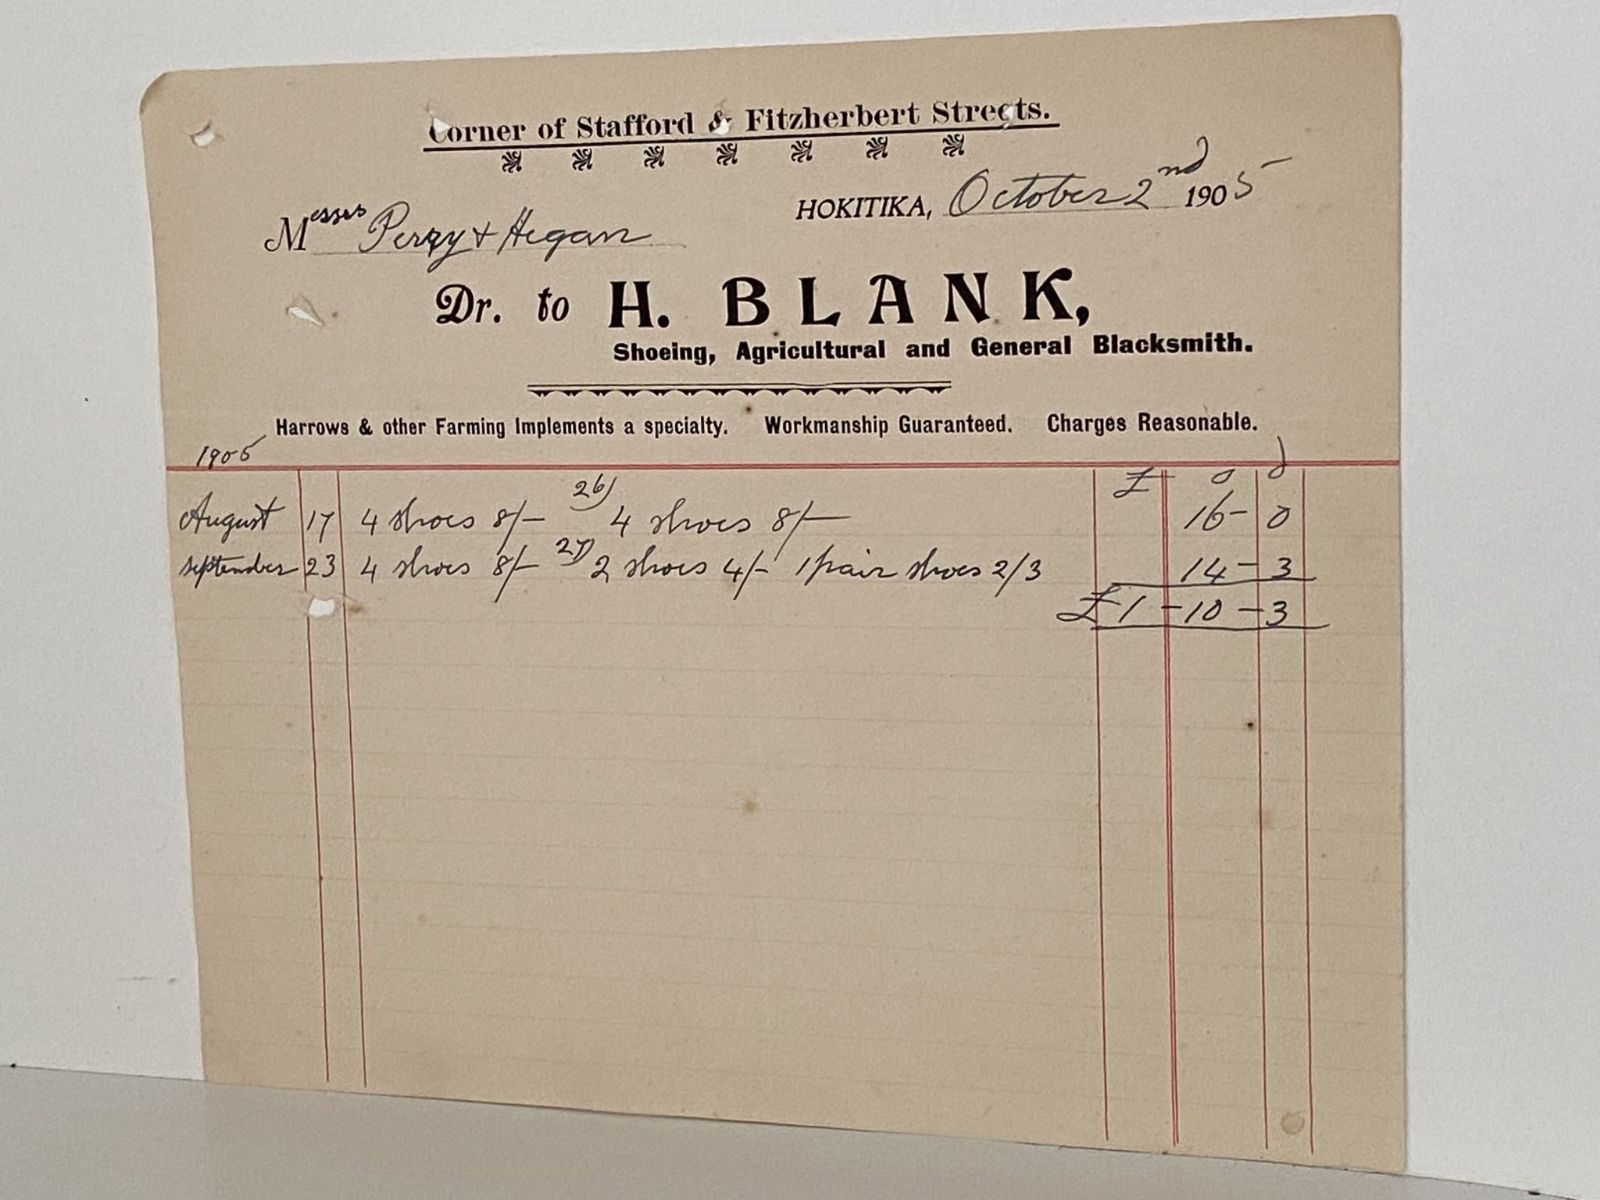 Corner of Stafford & Fitzherbert Streets.
HOKITIKA, October 2nd 1905
Messrs Perry & Hegan
Dr. to H. BLANK,
Shoeing, Agricultural and General Blacksmith.
Harrows & other Farming Implements a specialty. Workmanship Guaranteed. Charges Reasonable.
1905
£ s d
August 17 4 shoes 8/- 26) 4 shoes 8/- 16-0
September 23 4 shoes 8/- 27) 2 shoes 4/- 1 pair shoes 2/3 14-3
£1-10-3